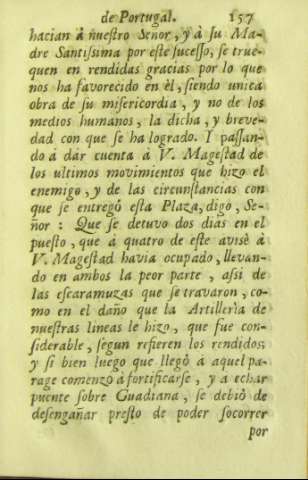 de Portugal. 157
hacian à nuestro Señor, y à su Ma-
dre Santissima por este sucesso, se true-
quen en rendidas gracias por lo que
nos ha favorecido en èl, siendo unica
obra de su misericordia, y no de los
medios humanos, la dicha, y breve-
dad con que se ha logrado. I passan-
do à dàr cuenta à V. Magestad de
los ultimos movimientos que hizo el
enemigo, y de las circunstancias con
que se entregò esta Plaza, digo, Se-
ñor: Que se detuvo dos dias en el
puesto, que à quatro de este avisè à
V. Magestad havia ocupado, llevan-
do en ambos la peor parte, asi de
las escaramuzas que se travaron, co-
mo en el daño que la Artillerìa de
nuestras lineas le hizo, que fue con-
siderable, segun refieren los rendidos;
y si bien luego que llegò à aquel pa-
rage comenzò à fortificarse, y a echar
puente sobre Guadiana, se debiò de
desengañar presto de poder socorrer
por